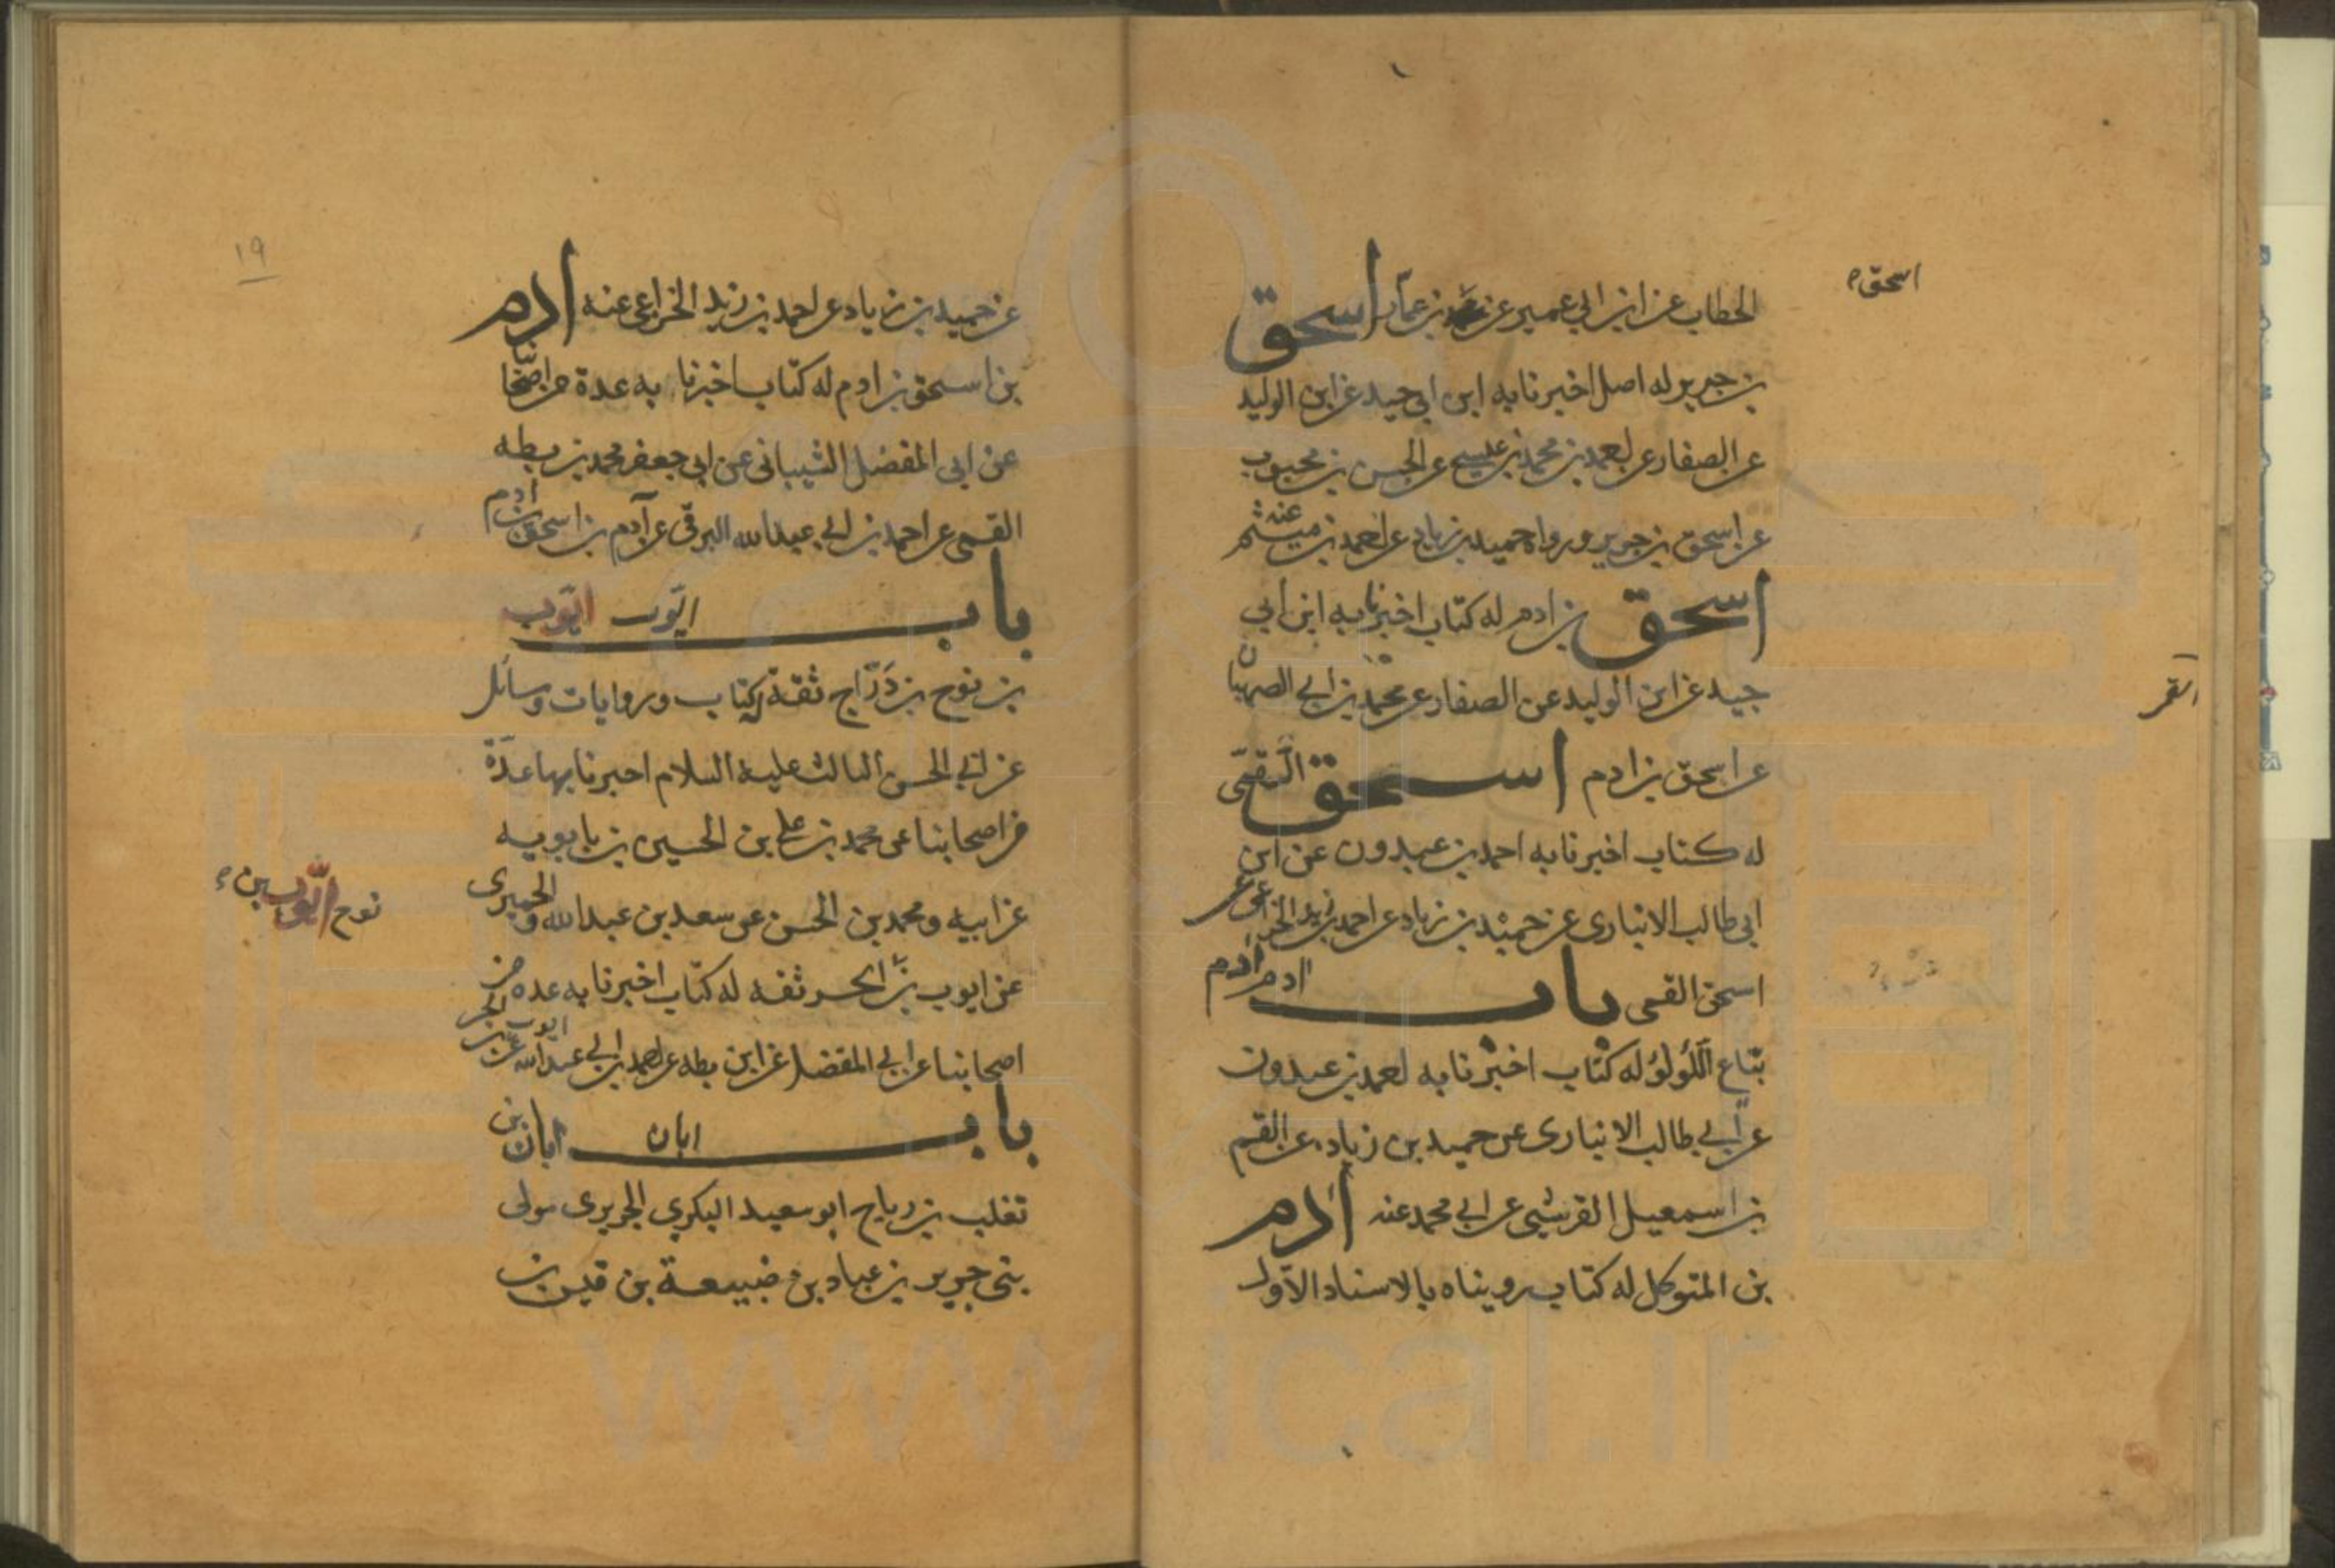 اسحق
الخطاب عن ابن ابي عمير عن محمد بن عمار اسحق
بن جرير له اصل اخبرنا به ابن ابي جيد عن ابن الوليد
عن الصفار عن احمد بن محمد بن عيسى عن الحسن بن محبوب
عن اسحق بن جرير ورواه حميد بن زياد عن احمد بن ميثم عنه
اسحق بن ادم له كتاب اخبرنا به ابن ابي
جيد عن ابن الوليد عن الصفار عن محمد بن ابي الصهبان
عن اسحق بن ادم اسحق القمي
له كتاب اخبرنا به احمد بن عبدون عن ابن
ابي طالب الانباري عن حميد بن زياد عن احمد بن زيد الخزاعي عن
اسحق القمي باب ادم ادم
بياع اللؤلؤ له كتاب اخبرنا به احمد بن عبدون
عن ابي طالب الانباري عن حميد بن زياد عن القسم
بن اسمعيل القرشي عن ابي محمد عنه آدم
بن المتوكل له كتاب رويناه بالاسناد الاول
١٩
عن حميد بن زياد عن احمد بن زيد الخزاعي عنه آدم
بن اسحق بن ادم له كتاب اخبرنا به عدة من اصحابنا
عن ابي المفضل الشيباني عن ابي جعفر محمد بن بطه
القمي عن احمد بن ابي عبد الله البرقي عن آدم بن اسحق بن آدم
باب ايوب ايوب
بن نوح بن درّاج ثقة له كتاب وروايات ومسائل
عن ابي الحسن الثالث عليه السلام اخبرنا بها عدّة
من اصحابنا عن محمد بن علي بن الحسين بن بابويه
عن ابيه ومحمد بن الحسن عن سعد بن عبد الله والحميري
نوح ايوب بن
عن ايوب بن الحر ثقه له كتاب اخبرنا به عده من
اصحابنا عن ابي المفضل عن ابن بطه عن احمد بن ابي عبد الله عن ايوب بن الحر
باب ابان ابان بن
تغلب بن رباح ابو سعيد البكري الجريري مولى
بني جرير بن عباد بن ضبيعة بن قيس بن
www.ical.ir